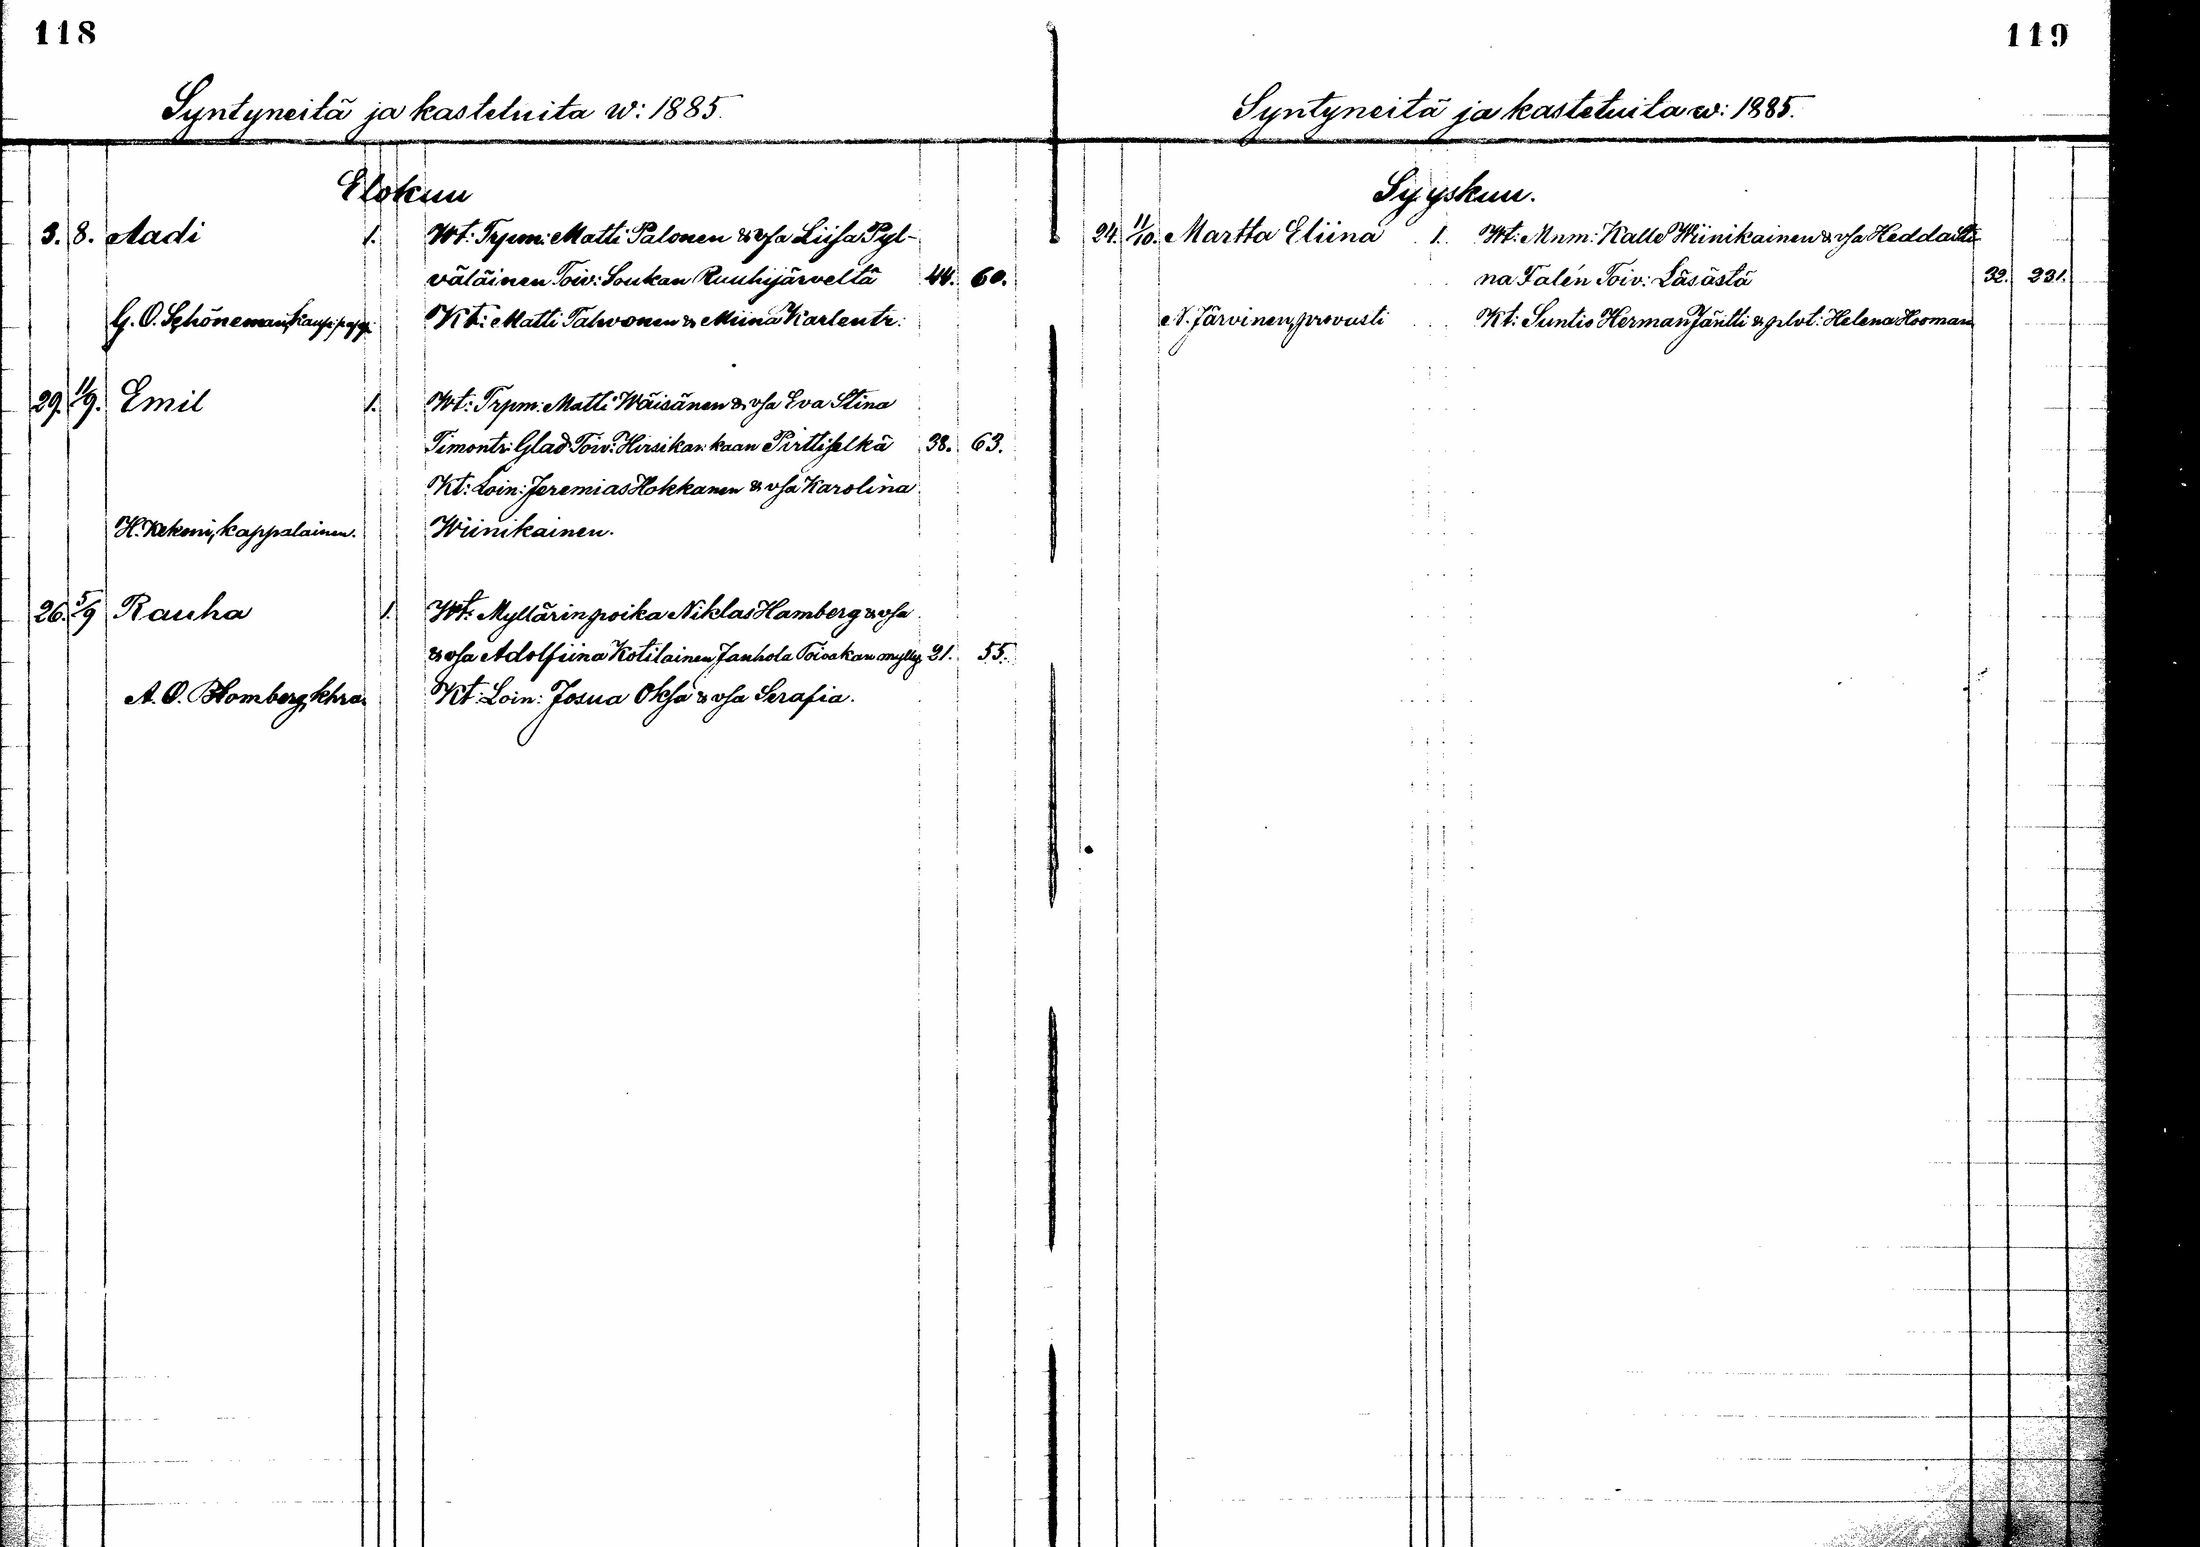 118
Syntyneitä ja kasteluita w: 1885.
Elokuu
3. 8. Aadi 1. Wt: Trpm: Matti Palonen & vsa Liisa Pyl-
väläinen Toiv: Soukan Ruuhijärveltä 44. 60.
G. O. Schöneman, Kt: Matti Talwonen & Miina Karlentr.
29. 11/9. Emil 1. Wt: Trpm: Matti Wäisänen & vsa Eva Stina
Timontr: Glad Toiv: Hirsikan: kaan Pirttiselkä 38. 63.
Kt: Loin: Jeremias Hokkanen & vsa Karolina
H. Kekoni, kappalainen. Wiinikainen.
26. 5/9 Rauha 1. Wt: Myllärinpoika Niklas Hamberg & vsa
& vsa Adolfiina Kotilainen, Janhola Toivakan mylly 21. 55.
A. O. Blomberg, khra. Kt: Loin: Josua Oksa & vsa Serafia.
119
Syntyneitä ja kasteluita w: 1885.
Syyskuu.
24. 11/10. Martta Eliina 1. Wt: Mnm: Kalle Wiinikainen & vsa Hedda Sti
na Falén Toiv: Läsästä 32. 231.
N. Järvinen, provasti Kt: Suntio Herman Jäntti & plvt: Helena Hooman